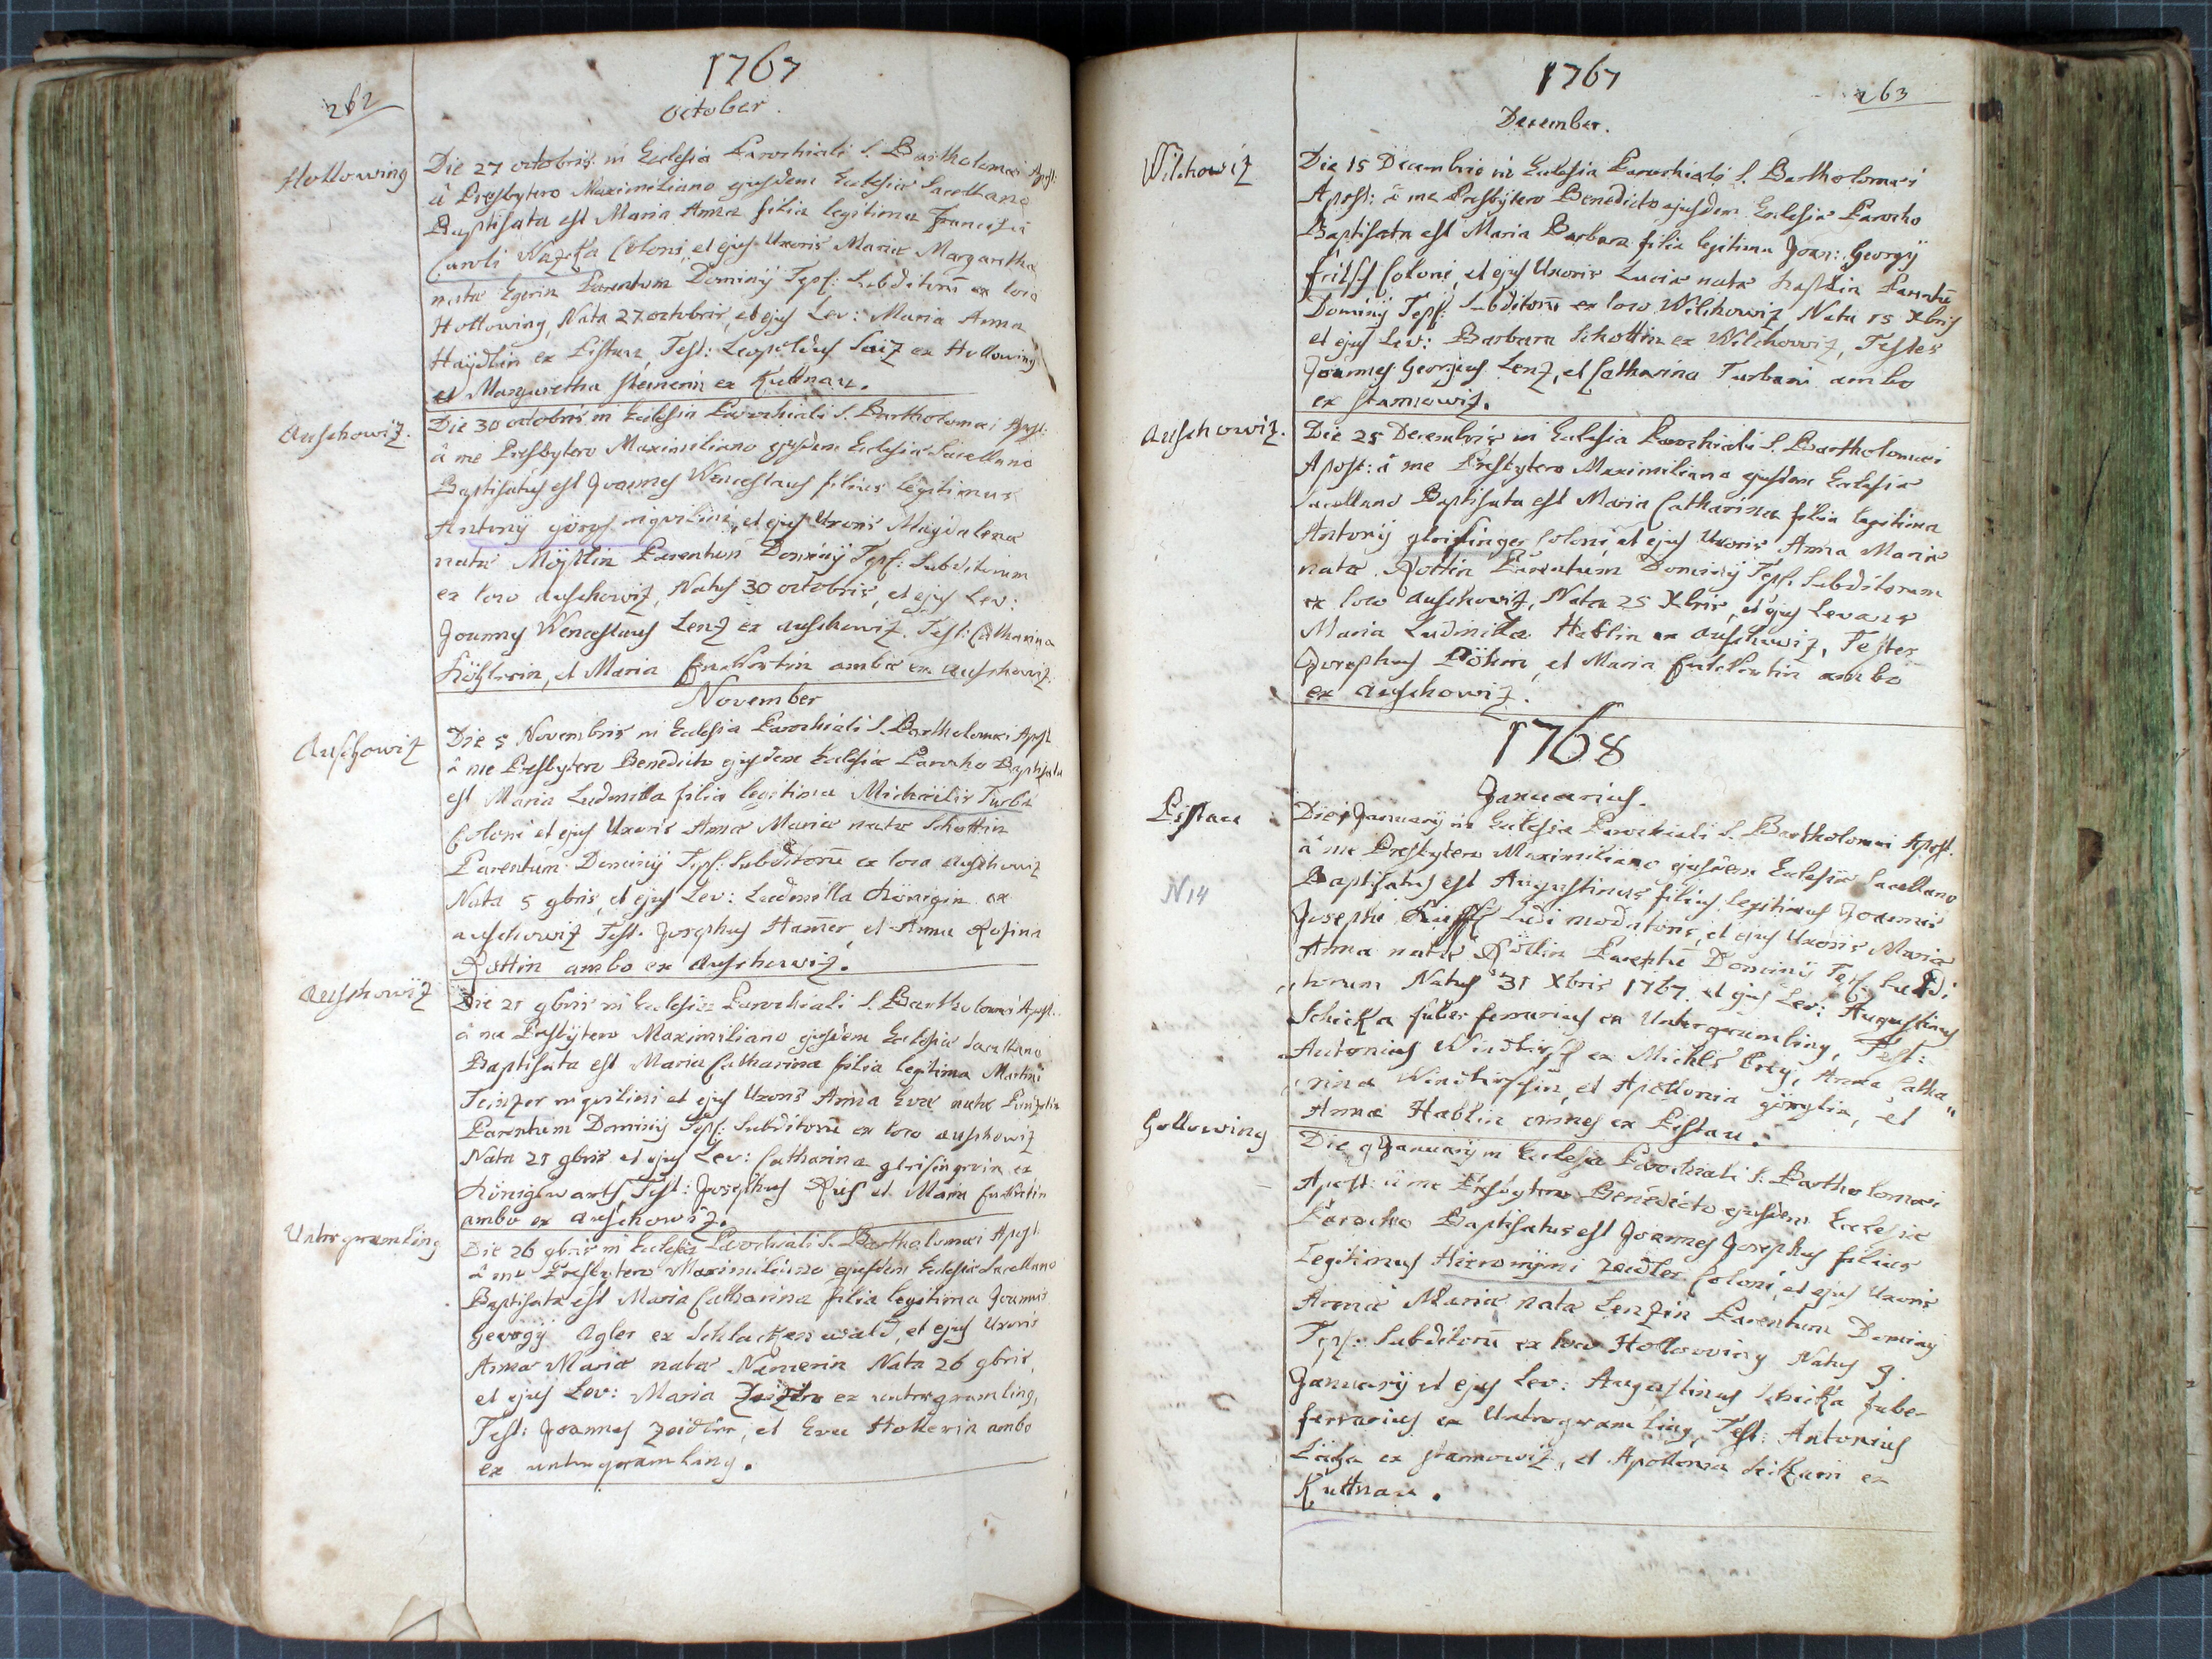 262
1767
October.
Hollowing
Die 27 octobris in Ecclesia Parochiali S. Bartholomæi Apost:
à Presbytero Maximiliano ejusdem Ecclesiæ Sacellano
Baptisata est Maria Anna filia legitima Francisci
Caroli Coloni, et ejus Uxoris Mariæ Margaretha
nata Egerin Parentum Dominÿ Tepl: Subditorū ex loco
Hollowing, Nata 27 octobris, et ejus Lev: Maria Anna
Haÿdlin ex Pistau, Test: Leopoldus ex Hollowing
et Margaretha Steinerin ex Kuttnau.
Auschowiz.
Die 30 octobris in Ecclesia Parochiali S. Bartholomæi Apost:
à me Presbytero Maximiliano ejusdem Ecclesiæ Sacellano
Baptisatus est Joannes Wenceslaus filius legitimus
Antonÿ inquilini, et ejus Uxoris Magdalena
nata Parentum Dominÿ Tepl: Subditorum
ex loco Auschowiz, Natus 30 octobris, et ejus Lev:
Joannes Wenceslaus Lenz ex auschowiz. Test: Catharina
et Maria ambæ ex auschowiz.
November
Auschowiz
Die 5 Novembris in Ecclesia Parochiali S. Bartholomæi Apost
à me Presbytero Benedicto ejusdem Ecclesiæ Parocho Baptisata
est Maria Ludmilla filia legitima Michaëlis Turba
Coloni et ejus Uxoris Anna Maria nata Schottin
Parentum Dominÿ Tepl: Subditorū ex loco auschowiz
Nata 5 9bris, et ejus Lev: Ludmilla Königin ex
auschowiz Test. Josephus Ham̄er, et Anna Rosina
Rottin ambo ex Auschowiz.
auschowiz
Die 21 9bris in Ecclesia Parochiali S. Bartholomæi Apost.
à me Presbÿtero Maximiliano ejusdem Ecclesiæ Sacellano
Baptisata est Maria Catharina filia legitima Martini
inquilini et ejus Uxoris Anna Eva nata
Parentum Dominÿ Tepl: Subditorū ex loco auschowiz
Nata 21 9bris et ejus Lev: Catharina gleisingerin ex
Königswarth, Test: Josephus et Maria
ambo ex auschowiz.
Untergramling
Die 26 9bris in Ecclesia Parochiali S. Bartholomæi Apost
à me Presbytero Maximiliano ejusdem Ecclesiæ Sacellano
Baptisata est Maria Catharina filia legitima Joannis
Georgÿ Agler ex Schlackenwald, et ejus Uxoris
Anna Maria nata Nemerin Nata 26 9bris,
et ejus Lev: Maria ex untergramling,
Test: Joannes et Eva Hollerin ambo
ex untergramling.
263
1767
December.
Wilchowiz
Die 15 Decembris in Ecclesia Parochiali S. Bartholomæi
Apost: à me Presbÿtero Benedicto ejusdem Ecclesiæ Parocho
Baptisata est Maria Barbara filia legitima Joan: Georgÿ
fritsch Coloni, et ejus Uxoris Lucia nata Parentū
Dominÿ Tepl: Subditorū ex loco Wilchowiz Nata 15 Xbris
et ejus Lev: Barbara Schottin ex Wilchowiz, Testes
Joannes Georgius Lenz, et Catharina Turbani ambo
ex stanowiz.
auschowiz.
Die 25 Decembris in Ecclesia Parochiali S. Bartholomæi
Apost: à me Presbytero Maximiliano ejusdem Ecclesiæ
Sacellano Baptisata est Maria Catharina filia legitima
Antonÿ gleisinger Coloni et ejus Uxoris Anna Maria
nata Rottin Parentum Dominÿ Tepl: Subditorum
ex loco auschowiz, Nata 25 Xbris, et ejus Levans
Maria Ludmilla Hablin ex auschowiz, Testes
Josephus Böhm, et Maria ambo
ex auschowiz.
1768
Januarius.
Pistau
N 14
Die 1 Januarÿ in Ecclesia Parochiali S. Bartholomæi Apost.
à me Presbytero Maximiliano ejusdem Ecclesiæ Sacellano
Baptisatus est Augustinus filius legitimus Joannis
Josephi Ludi moderatoris, et ejus Uxoris Maria
Anna nata Parentū Dominÿ Tepl: Subdi
torum Natus 31 Xbris 1767. et ejus Lev: Augustinus
Schicka faber ferrarius ex Untergramling, Test:
Antonius Windhirsch ex Michls berg, Anna Catha
rina Windhirschin, et Apollonia görglin, et
Anna Hablin omnes ex Pistau.
Hollowing
Die 9 Januarÿ in Ecclesia Parochiali S. Bartholomæi
Apost: à me Presbytero Benedicto ejusdem Ecclesiæ
Parocho Baptisatus est Joannes Josephus filius
Legitimus Hieronÿmi Zeidler Coloni, et ejus Uxoris
Anna Maria nata Lenzin Parentum Dominÿ
Tepl: Subditorū ex loco Hollowing Natus 9.
Januarÿ et ejus Lev: Augustinus Schicka faber
ferrarius ex Untergramling, Test: Antonius
ex stanowiz, et Apollonia ex
Kuttnau.